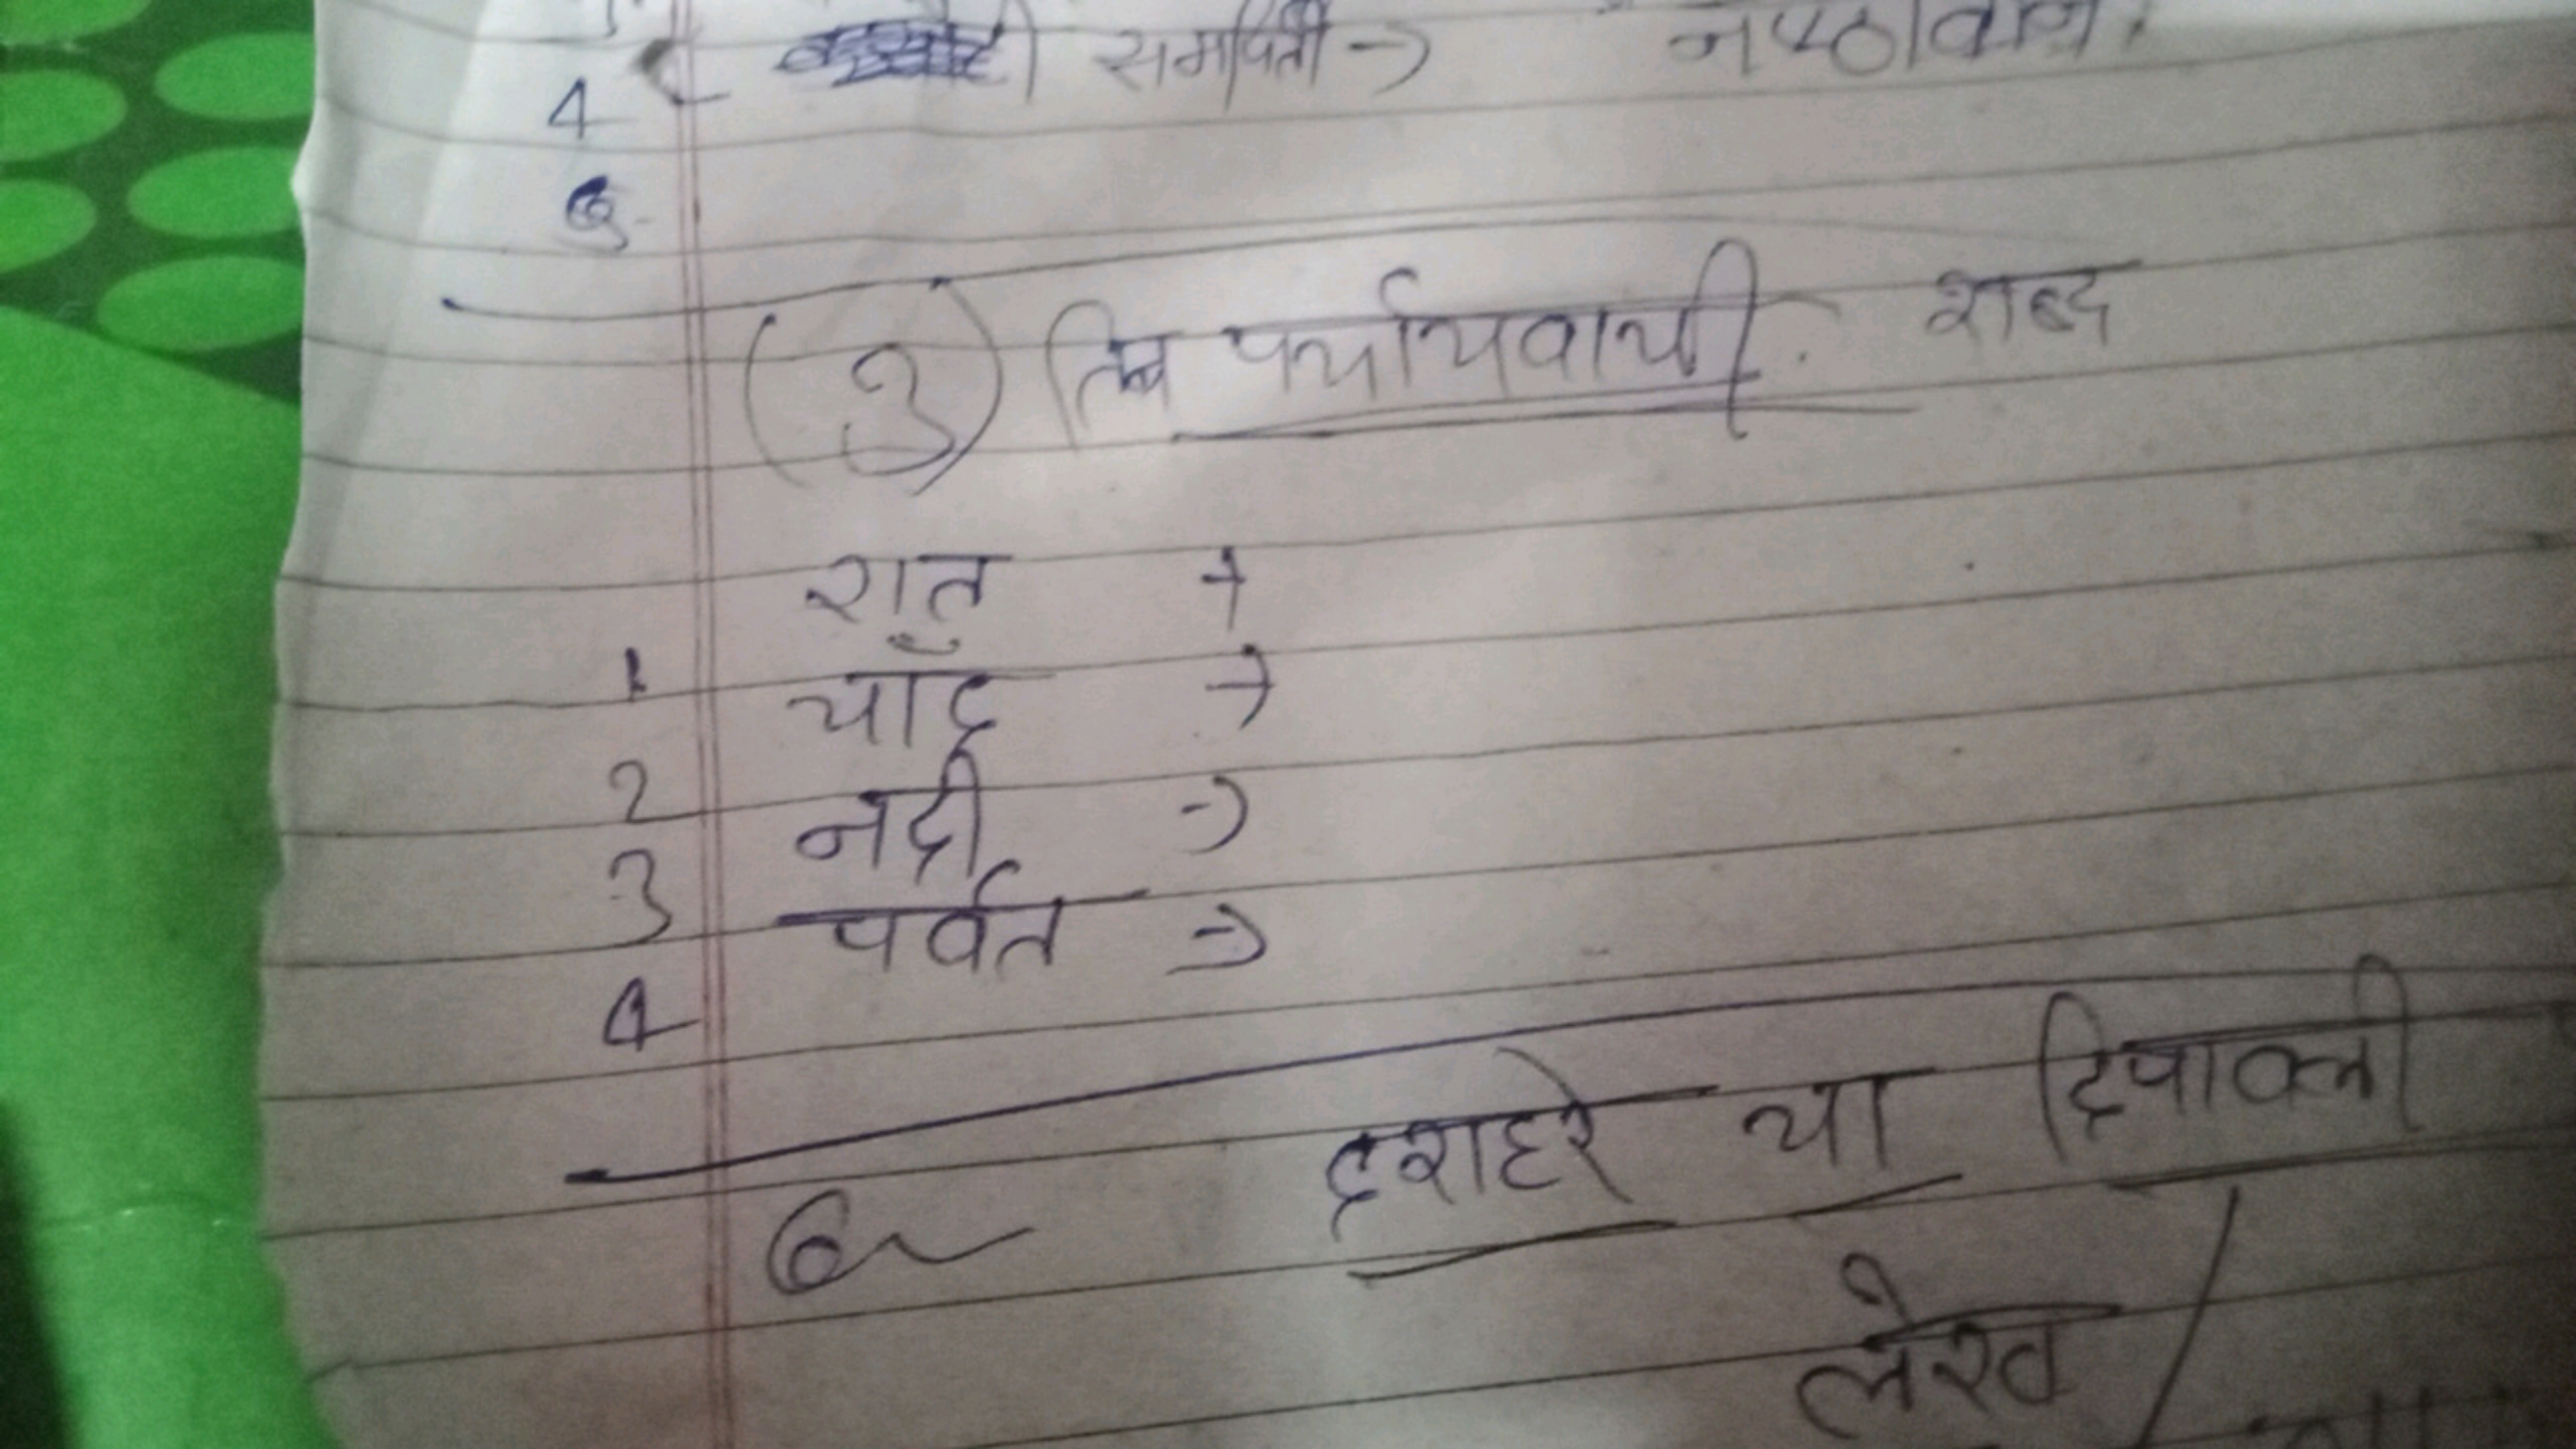 4 समर्पिती →
(3) पर्यायवाची. शब्द
रात →
1 चाँद →
2 नदी →
3 पर्वत →
4
दशहरे या दिपावली
लेख